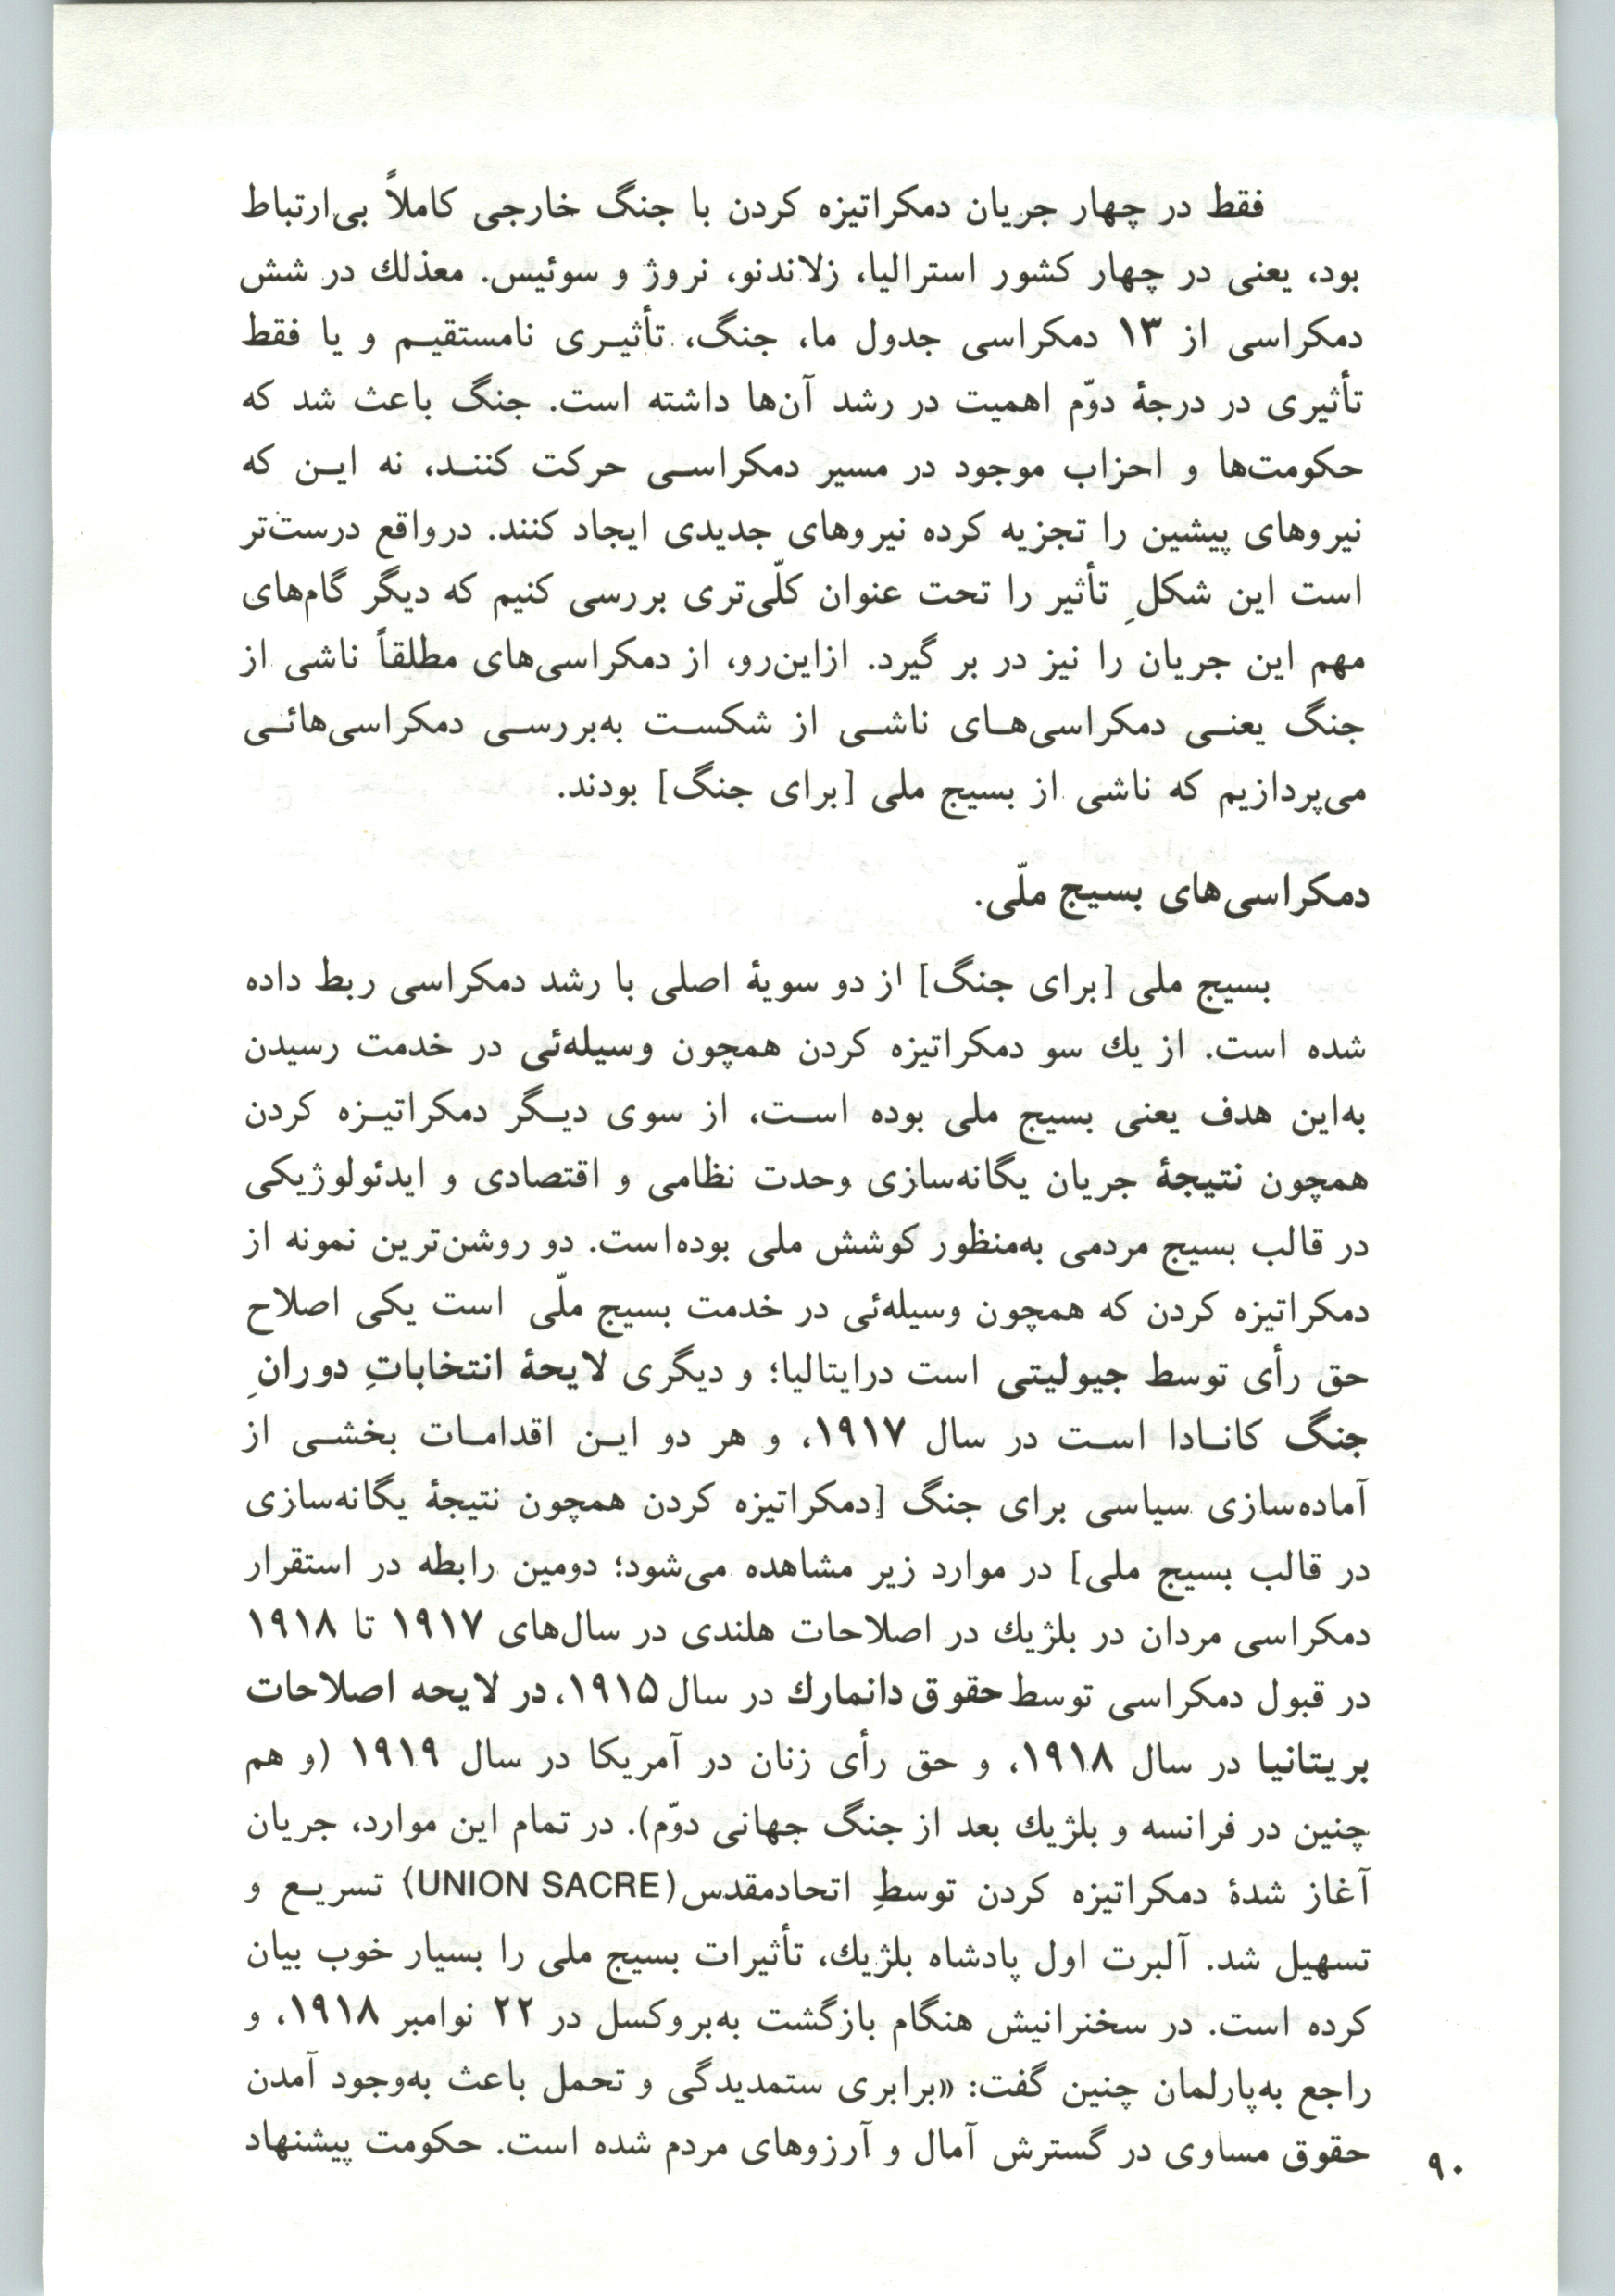 فقط در چهار جریان دمکراتیزه کردن با جنگ خارجی کاملاً بی‌ارتباط
بود، یعنی در چهار کشور استرالیا، زلاندنو، نروژ و سوئیس. معذلك در شش
دمکراسی از ۱۳ دمکراسی جدول ما، جنگ، تأثیـری نامستقیـم و یا فقط
تأثیری در درجهٔ دوّم اهمیت در رشد آن‌ها داشته است. جنگ باعث شد که
حکومت‌ها و احزاب موجود در مسیر دمکراسـی حرکت کننـد، نه ایـن که
نیروهای پیشین را تجزیه کرده نیروهای جدیدی ایجاد کنند. درواقع درست‌تر
است این شکلِ تأثیر را تحت عنوان کلّی‌تری بررسی کنیم که دیگر گام‌های
مهم این جریان را نیز در بر گیرد. ازاین‌رو، از دمکراسی‌های مطلقاً ناشی از
جنگ یعنـی دمکراسی‌هـای ناشـی از شکسـت به‌بررسـی دمکراسی‌هائـی
می‌پردازیم که ناشی از بسیج ملی [برای جنگ] بودند.
دمکراسی‌های بسیج ملّی.
بسیج ملی [برای جنگ] از دو سویهٔ اصلی با رشد دمکراسی ربط داده
شده است. از یك سو دمکراتیزه کردن همچون وسیله‌ئی در خدمت رسیدن
به‌این هدف یعنی بسیج ملی بوده اسـت، از سوی دیـگر دمکراتیـزه کردن
همچون نتیجهٔ جریان یگانه‌سازی وحدت نظامی و اقتصادی و ایدئولوژیکی
در قالب بسیج مردمی به‌منظور کوشش ملی بوده‌است. دو روشن‌ترین نمونه از
دمکراتیزه کردن که همچون وسیله‌ئی در خدمت بسیج ملّی است یکی اصلاح
حق رأی توسط جیولیتی است درایتالیا؛ و دیگری لایحهٔ انتخاباتِ دورانِ
جنگ کانـادا اسـت در سال ۱۹۱۷، و هر دو ایـن اقدامـات بخشـی از
آماده‌سازی سیاسی برای جنگ [دمکراتیزه کردن همچون نتیجهٔ یگانه‌سازی
در قالب بسیج ملی] در موارد زیر مشاهده می‌شود؛ دومین رابطه در استقرار
دمکراسی مردان در بلژیك در اصلاحات هلندی در سال‌های ۱۹۱۷ تا ۱۹۱۸
در قبول دمکراسی توسط حقوق دانمارك در سال ۱۹۱۵، در لایحه اصلاحات
بریتانیا در سال ۱۹۱۸، و حق رأی زنان در آمریکا در سال ۱۹۱۹ (و هم
چنین در فرانسه و بلژیك بعد از جنگ جهانی دوّم). در تمام این موارد، جریان
آغاز شدهٔ دمکراتیزه کردن توسطِ اتحادمقدس (UNION SACRE) تسریـع و
تسهیل شد. آلبرت اول پادشاه بلژیك، تأثیرات بسیج ملی را بسیار خوب بیان
کرده است. در سخنرانیش هنگام بازگشت به‌بروکسل در ۲۲ نوامبر ۱۹۱۸، و
راجع به‌پارلمان چنین گفت: «برابری ستمدیدگی و تحمل باعث به‌وجود آمدن
حقوق مساوی در گسترش آمال و آرزوهای مردم شده است. حکومت پیشنهاد
۹۰